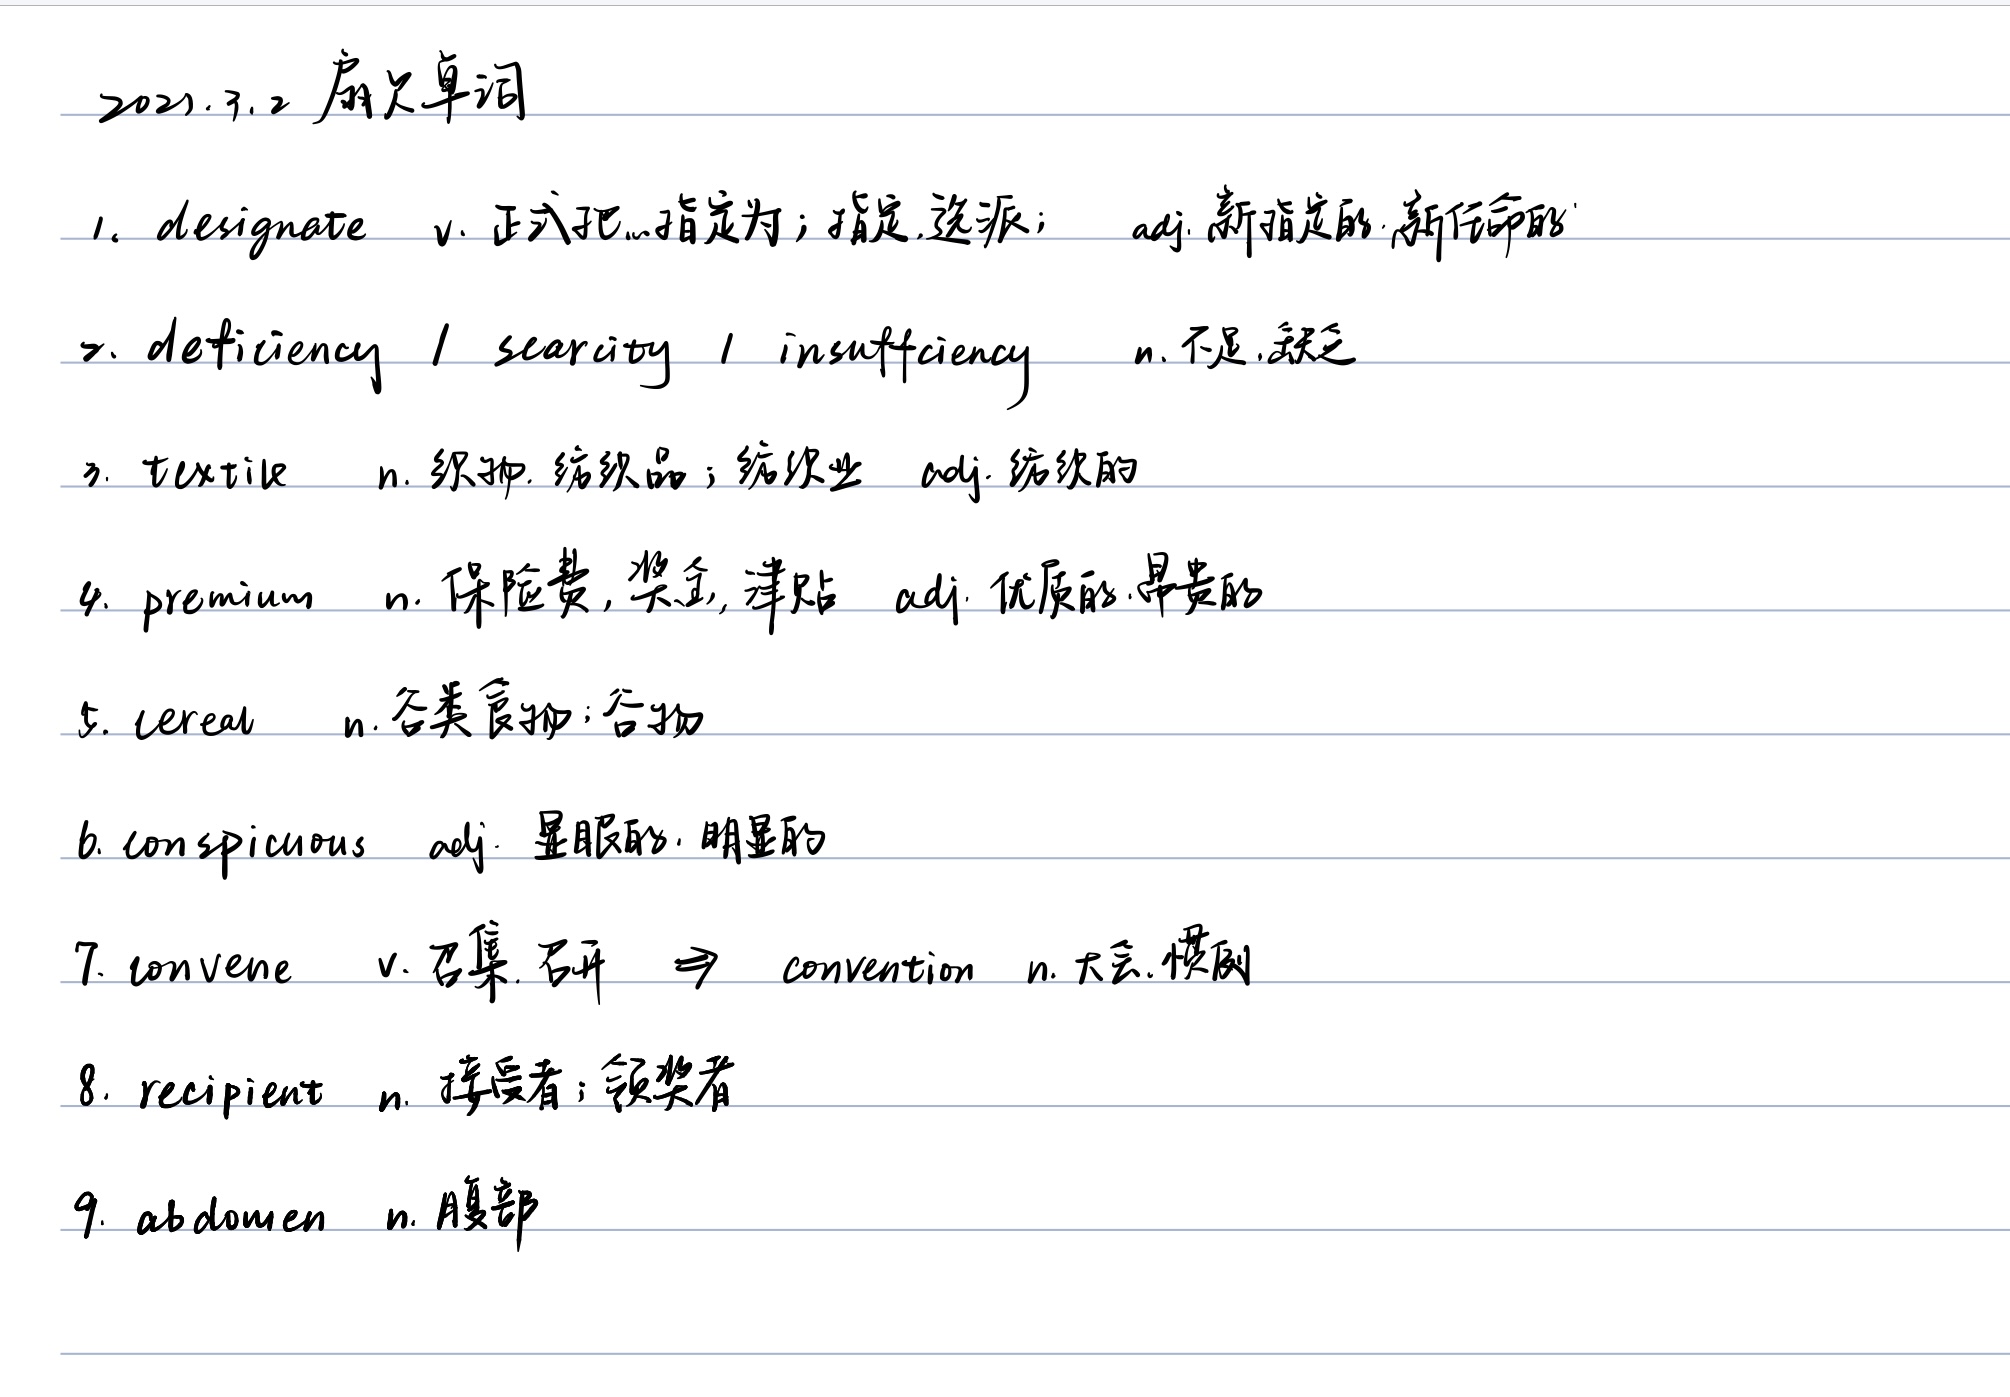 2025.3.2 扇贝单词
1. designate v. 正式把…指定为；指定、选派； adj. 新指定的、新任命的
2. deficiency / scarcity / insuffciency n. 不足、缺乏
3. textile n. 织物、纺织品；纺织业 adj. 纺织的
4. premium n. 保险费，奖金，津贴 adj. 优质的、昂贵的
5. cereal n. 谷类食物；谷物
6. conspicuous adj. 显眼的、明显的
7. convene v. 召集、召开 ⇒ convention n. 大会、惯例
8. recipient n. 接受者；领奖者
9. abdomen n. 腹部